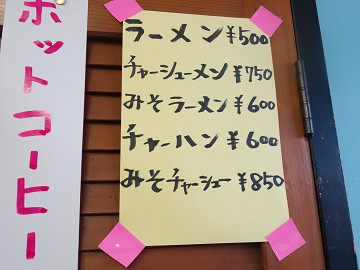 ホットコーヒー
ラーメン ¥500
チャーシューメン ¥750
みそラーメン ¥600
チャーハン ¥600
みそチャーシュー ¥850